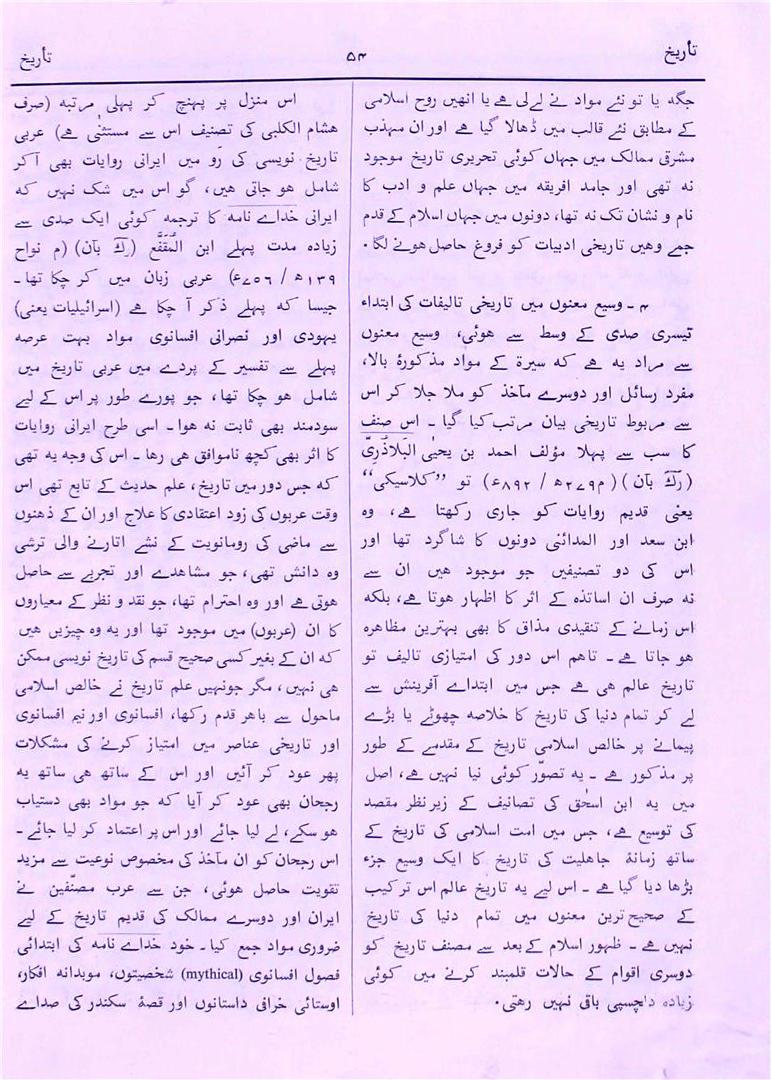 تأریخ
۵۴
تأریخ
جگہ یا تو نئے مواد نے لے لی ہے یا انھیں روح اسلامی
کے مطابق نئے قالب میں ڈھالا گیا ہے اور ان مہذب
مشرقی ممالک میں جہاں کوئی تحریری تاریخ موجود
نہ تھی اور جامد افریقہ میں جہاں علم و ادب کا
نام و نشان تک نہ تھا، دونوں میں جہاں اسلام کے قدم
جمے وھیں تاریخی ادبیات کو فروغ حاصل ہونے لگا۔
۴ ۔ وسیع معنوں میں تاریخی تالیفات کی ابتداء
تیسری صدی کے وسط سے ہوئی، وسیع معنوں
سے مراد یہ ہے کہ سیرۃ کے مواد مذکورۂ بالا،
مفرد رسائل اور دوسرے مآخذ کو ملا جلا کر اس
سے مربوط تاریخی بیان مرتب کیا گیا ۔ اس صنف
کا سب سے پہلا مؤلف احمد بن یحیٰی البَلاذُرِیّ
(رکّ بآن) (م ۲۷۹ھ / ۸۹۲ء) تو ”کلاسیکی“
یعنی قدیم روایات کو جاری رکھتا ہے، وہ
ابن سعد اور المدائنی دونوں کا شاگرد تھا اور
اس کی دو تصنیفیں جو موجود ھیں ان سے
نہ صرف ان اساتذہ کے اثر کا اظہار ہوتا ہے، بلکہ
اس زمانے کے تنقیدی مذاق کا بھی بہترین مظاھرہ
ھو جاتا ہے ۔ تاھم اس دور کی امتیازی تالیف تو
تاریخ عالم ھی ہے جس میں ابتداے آفرینش سے
لے کر تمام دنیا کی تاریخ کا خلاصہ چھوٹے یا بڑے
پیمانے پر خالص اسلامی تاریخ کے مقدمے کے طور
پر مذکور ہے ۔ یہ تصوّر کوئی نیا نہیں ہے، اصل
میں یہ ابن اسحٰق کی تصانیف کے زیر نظر مقصد
کی توسیع ہے، جس میں امت اسلامی کی تاریخ کے
ساتھ زمانۂ جاھلیت کی تاریخ کا ایک وسیع جزء
بڑھا دیا گیا ہے ۔ اس لیے یہ تاریخ عالم اس ترکیب
کے صحیح ترین معنوں میں تمام دنیا کی تاریخ
نہیں ہے ۔ ظہور اسلام کے بعد سے مصنف تاریخ کو
دوسری اقوام کے حالات قلمبند کرنے میں کوئی
زیادہ دلچسپی باقی نہیں رھتی۔
اس منزل پر پہنچ کر پہلی مرتبہ (صرف
ھشام الکلبی کی تصنیف اس سے مستثنٰی ہے) عربی
تاریخ نویسی کی رَو میں ایرانی روایات بھی آ کر
شامل ھو جاتی ھیں، گو اس میں شک نہیں کہ
ایرانی خداے نامہ کا ترجمہ کوئی ایک صدی سے
زیادہ مدت پہلے ابن المُقَفَّع (رکّ بآن) (م نواح
۱۳۹ھ / ۷۵٦ء) عربی زبان میں کر چکا تھا ۔
جیسا کہ پہلے ذکر آ چکا ہے (اسرائیلیات یعنی)
یہودی اور نصرانی افسانوی مواد بہت عرصہ
پہلے سے تفسیر کے پردے میں عربی تاریخ میں
شامل ھو چکا تھا، جو پورے طور پر اس کے لیے
سودمند بھی ثابت نہ ھوا ۔ اسی طرح ایرانی روایات
کا اثر بھی کچھ ناموافق ھی رھا ۔ اس کی وجہ یہ تھی
کہ جس دور میں تاریخ، علم حدیث کے تابع تھی اس
وقت عربوں کی زود اعتقادی کا علاج اور ان کے ذھنوں
سے ماضی کی رومانویت کے نشے اتارنے والی ترشی
وہ دانش تھی، جو مشاھدے اور تجربے سے حاصل
ھوتی ہے اور وہ احترام تھا، جو نقد و نظر کے معیاروں
کا ان (عربوں) میں موجود تھا اور یہ وہ چیزیں ھیں
کہ ان کے بغیر کسی صحیح قسم کی تاریخ نویسی ممکن
ھی نہیں، مگر جونہیں علم تاریخ نے خالص اسلامی
ماحول سے باھر قدم رکھا، افسانوی اور نیم افسانوی
اور تاریخی عناصر میں امتیاز کرنے کی مشکلات
پھر عود کر آئیں اور اس کے ساتھ ھی ساتھ یہ
رجحان بھی عود کر آیا کہ جو مواد بھی دستیاب
ھو سکے، لے لیا جائے اور اس پر اعتماد کر لیا جائے ۔
اس رجحان کو ان مآخذ کی مخصوص نوعیت سے مزید
تقویت حاصل ھوئی، جن سے عرب مصنّفین نے
ایران اور دوسرے ممالک کی قدیم تاریخ کے لیے
ضروری مواد جمع کیا ۔ خود خداے نامہ کی ابتدائی
فصول افسانوی (mythical) شخصیتوں، موبدانہ افکار،
اوستائی خرافی داستانوں اور قصۂ سکندر کی صداے